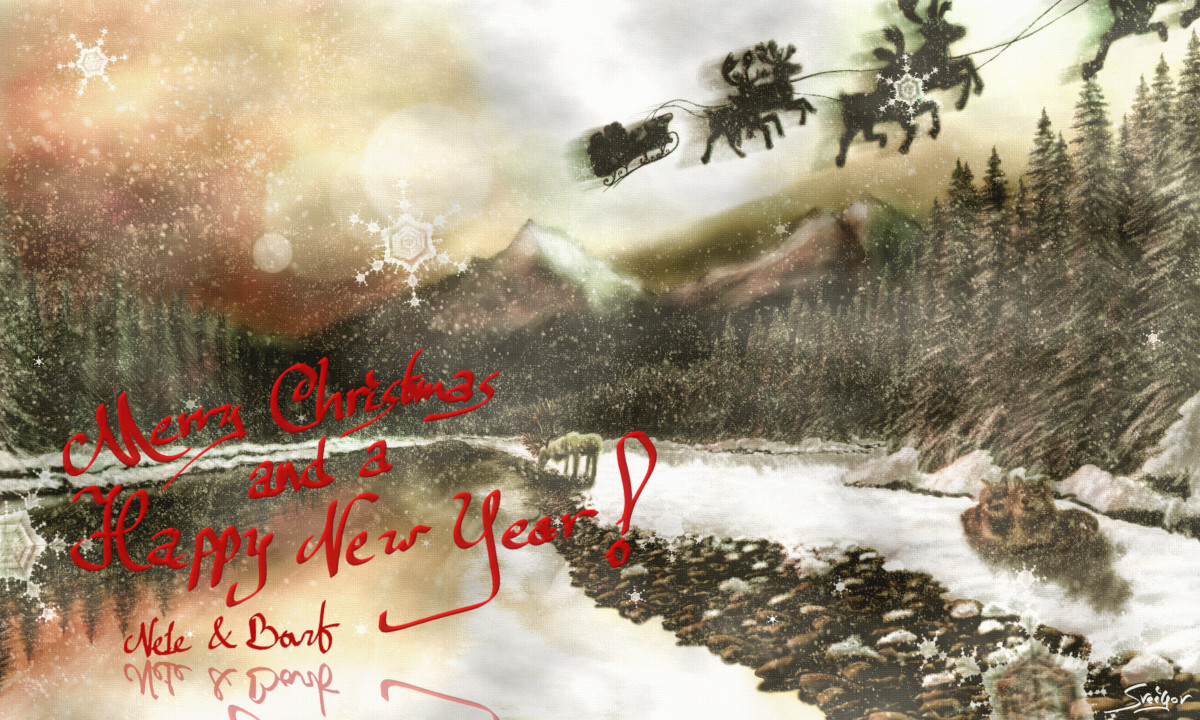 Merry Christmas
and a
Happy New Year!
Nele & Bart